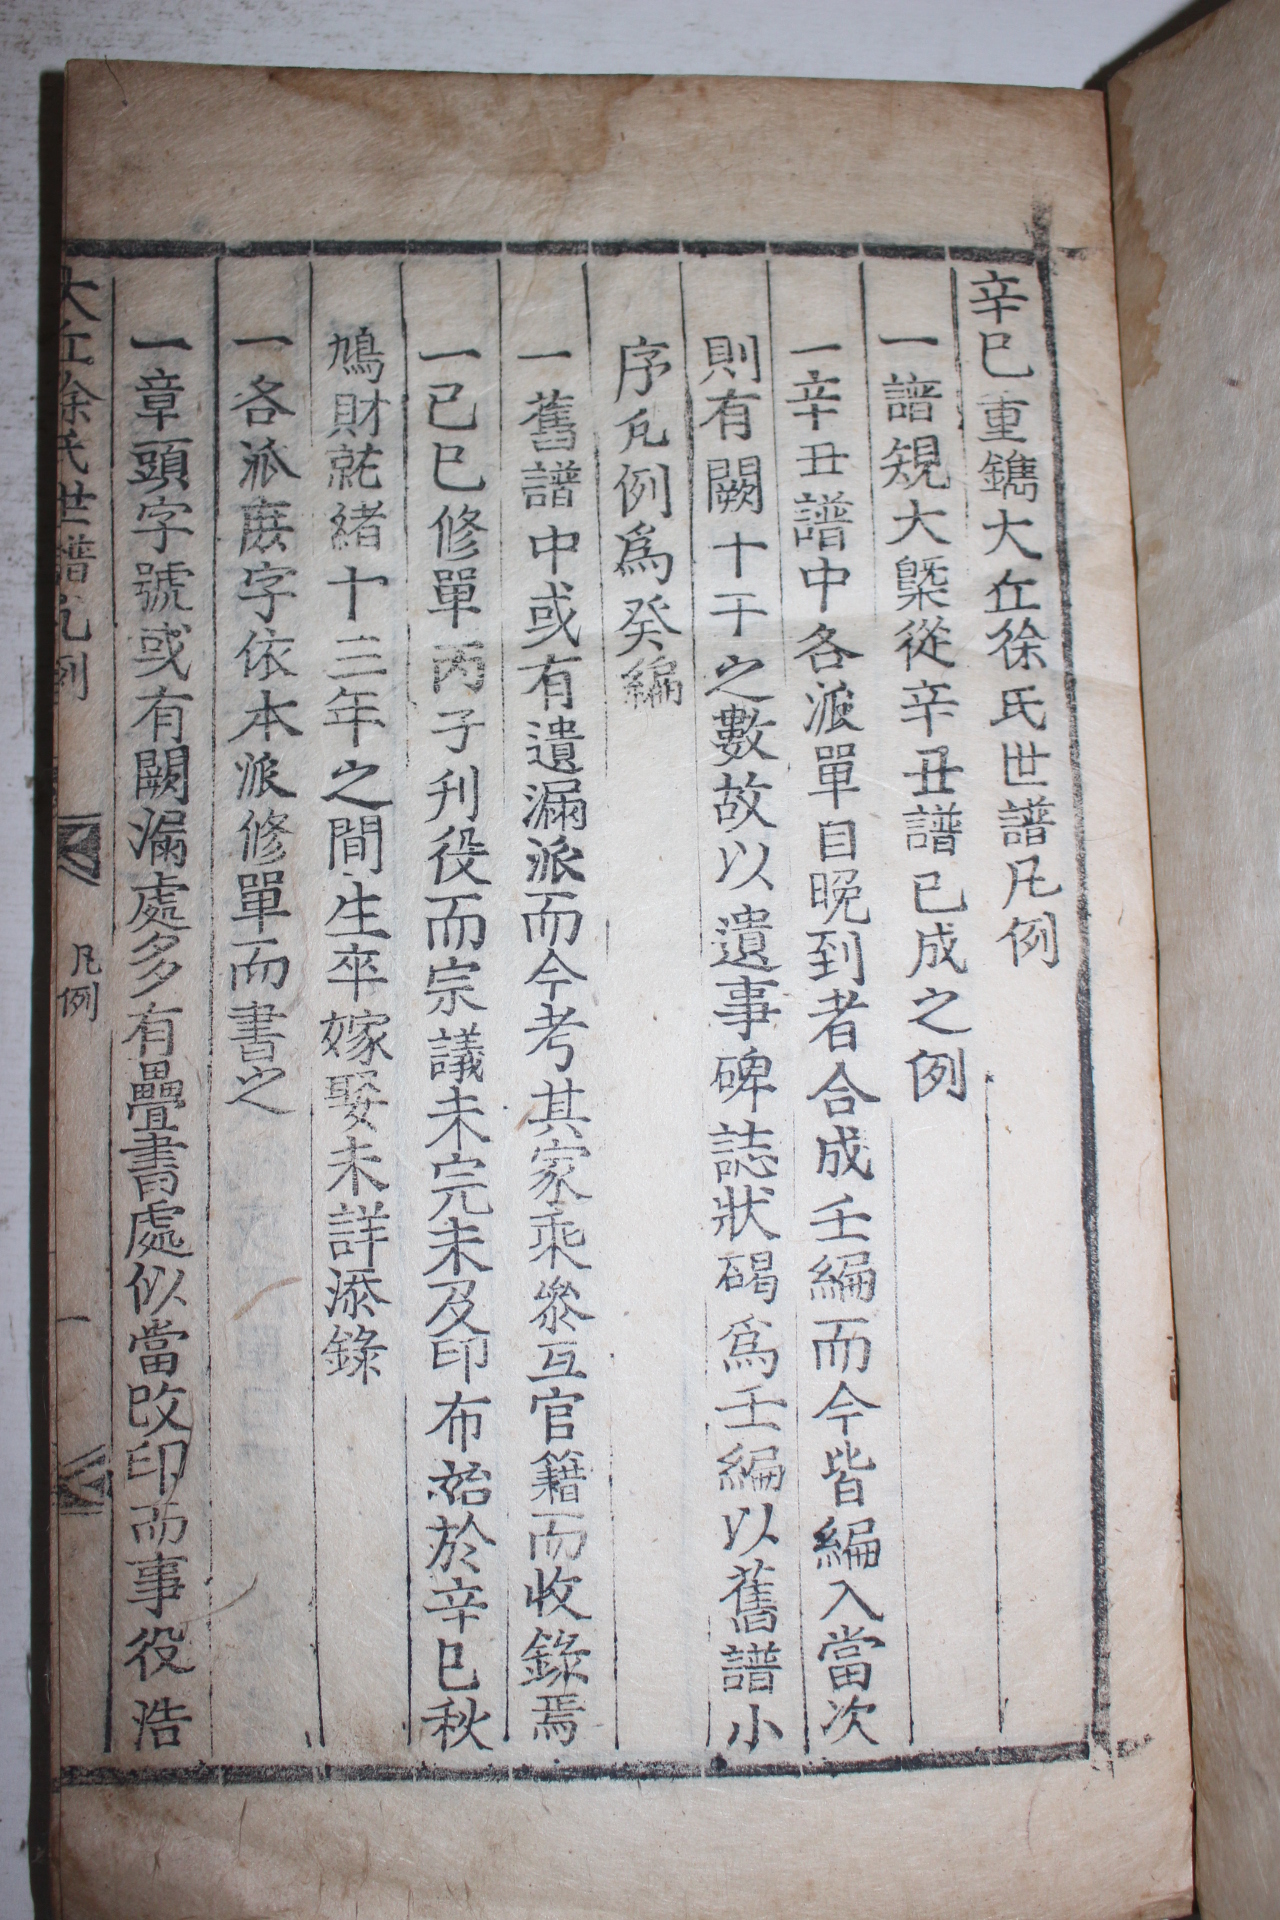 辛巳重鐫大丘徐氏世譜凡例
一譜規大槩從辛丑譜已成之例
一辛丑譜中各派單自晩到者合成壬編而今皆編入當次
則有闕十干之數故以遺事碑誌狀碣爲壬編以舊譜小
序凡例爲癸編
一舊譜中或有遺漏派而今考其家乘叅互官籍而收錄焉
一己巳修單丙子刋役而宗議未完未及印布始於辛巳秋
鳩財就緖十三年之間生卒嫁娶未詳添錄
一各派庶字依本派修單而書之
一章頭字號或有闕漏處多有疊書處似當改印而事役浩
大丘徐氏世譜凡例 凡例 一